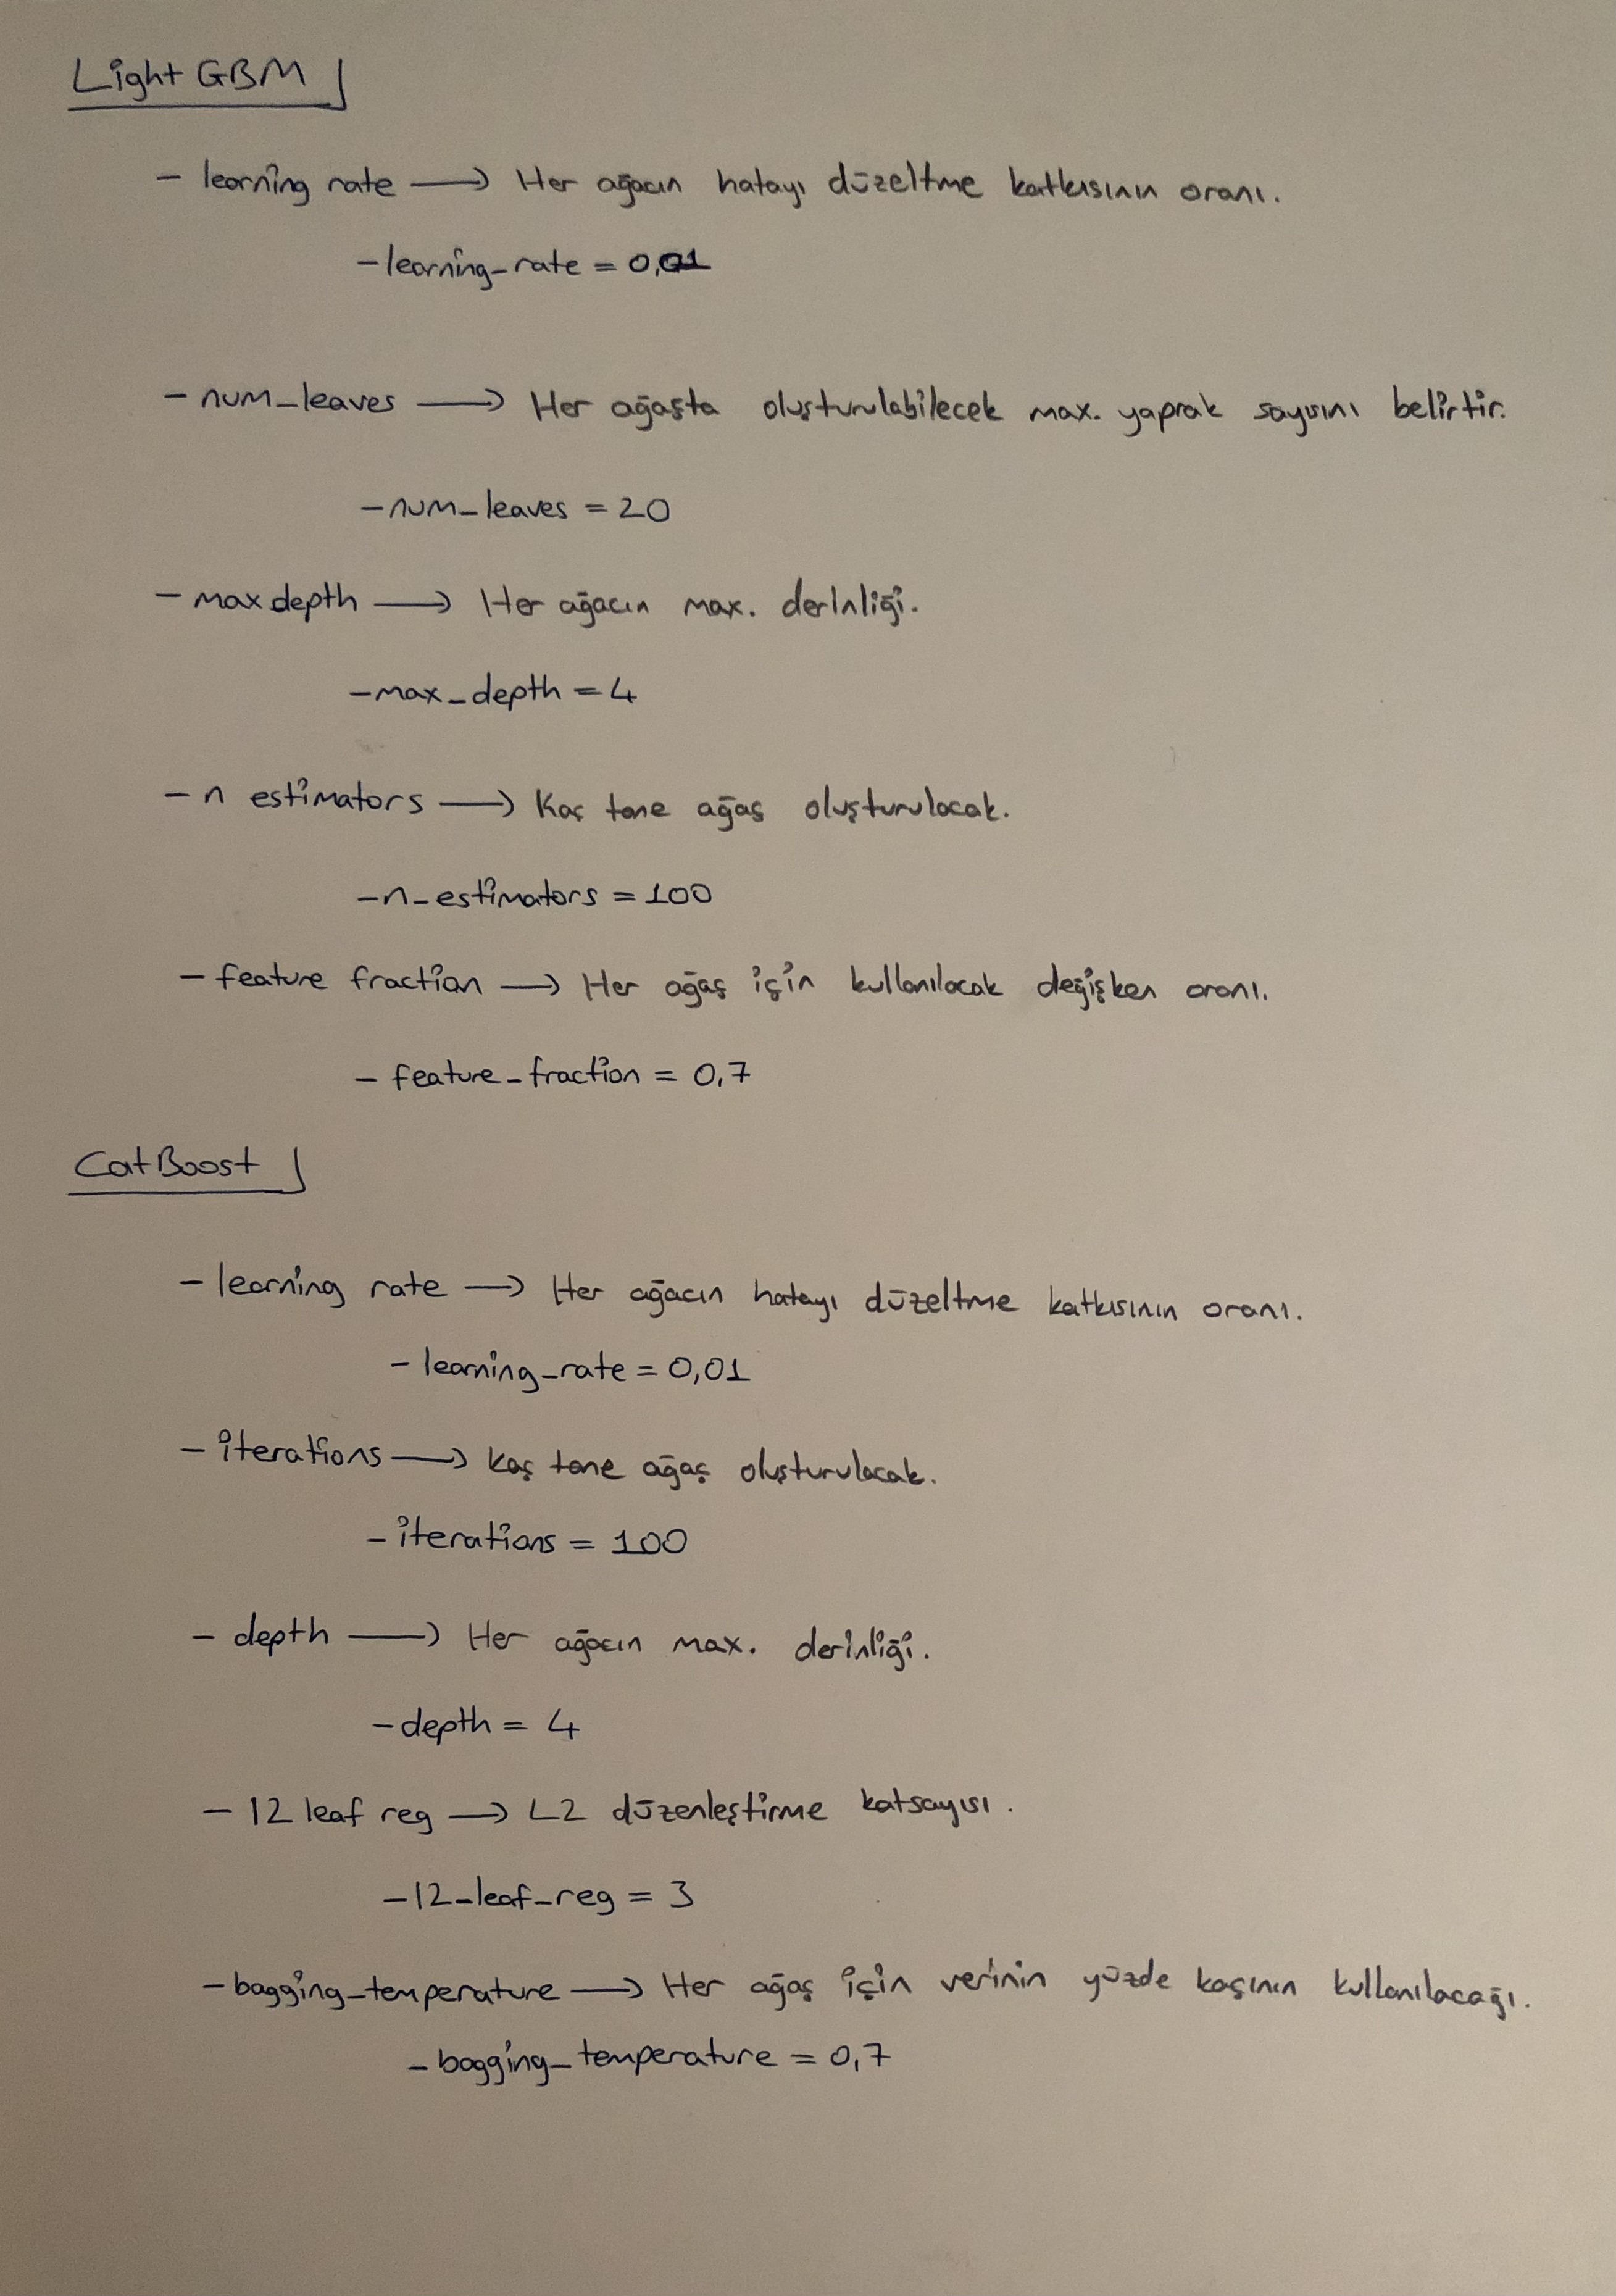 LightGBM
- learning rate → Her ağacın hatayı düzeltme katkısının oranı.
- learning_rate = 0,01
- num_leaves → Her ağaçta oluşturulabilecek max. yaprak sayısını belirtir.
- num_leaves = 20
- max depth → Her ağacın max. derinliği.
- max_depth = 4
- n estimators → Kaç tane ağaç oluşturulacak.
- n_estimators = 100
- feature fraction → Her ağaç için kullanılacak değişken oranı.
- feature_fraction = 0,7
CatBoost
- learning rate → Her ağacın hatayı düzeltme katkısının oranı.
- learning_rate = 0,01
- iterations → Kaç tane ağaç oluşturulacak.
- iterations = 100
- depth → Her ağacın max. derinliği.
- depth = 4
- l2 leaf reg → L2 düzenleştirme katsayısı.
- l2_leaf_reg = 3
- bagging_temperature → Her ağaç için verinin yüzde kaçının kullanılacağı.
- bagging_temperature = 0,7